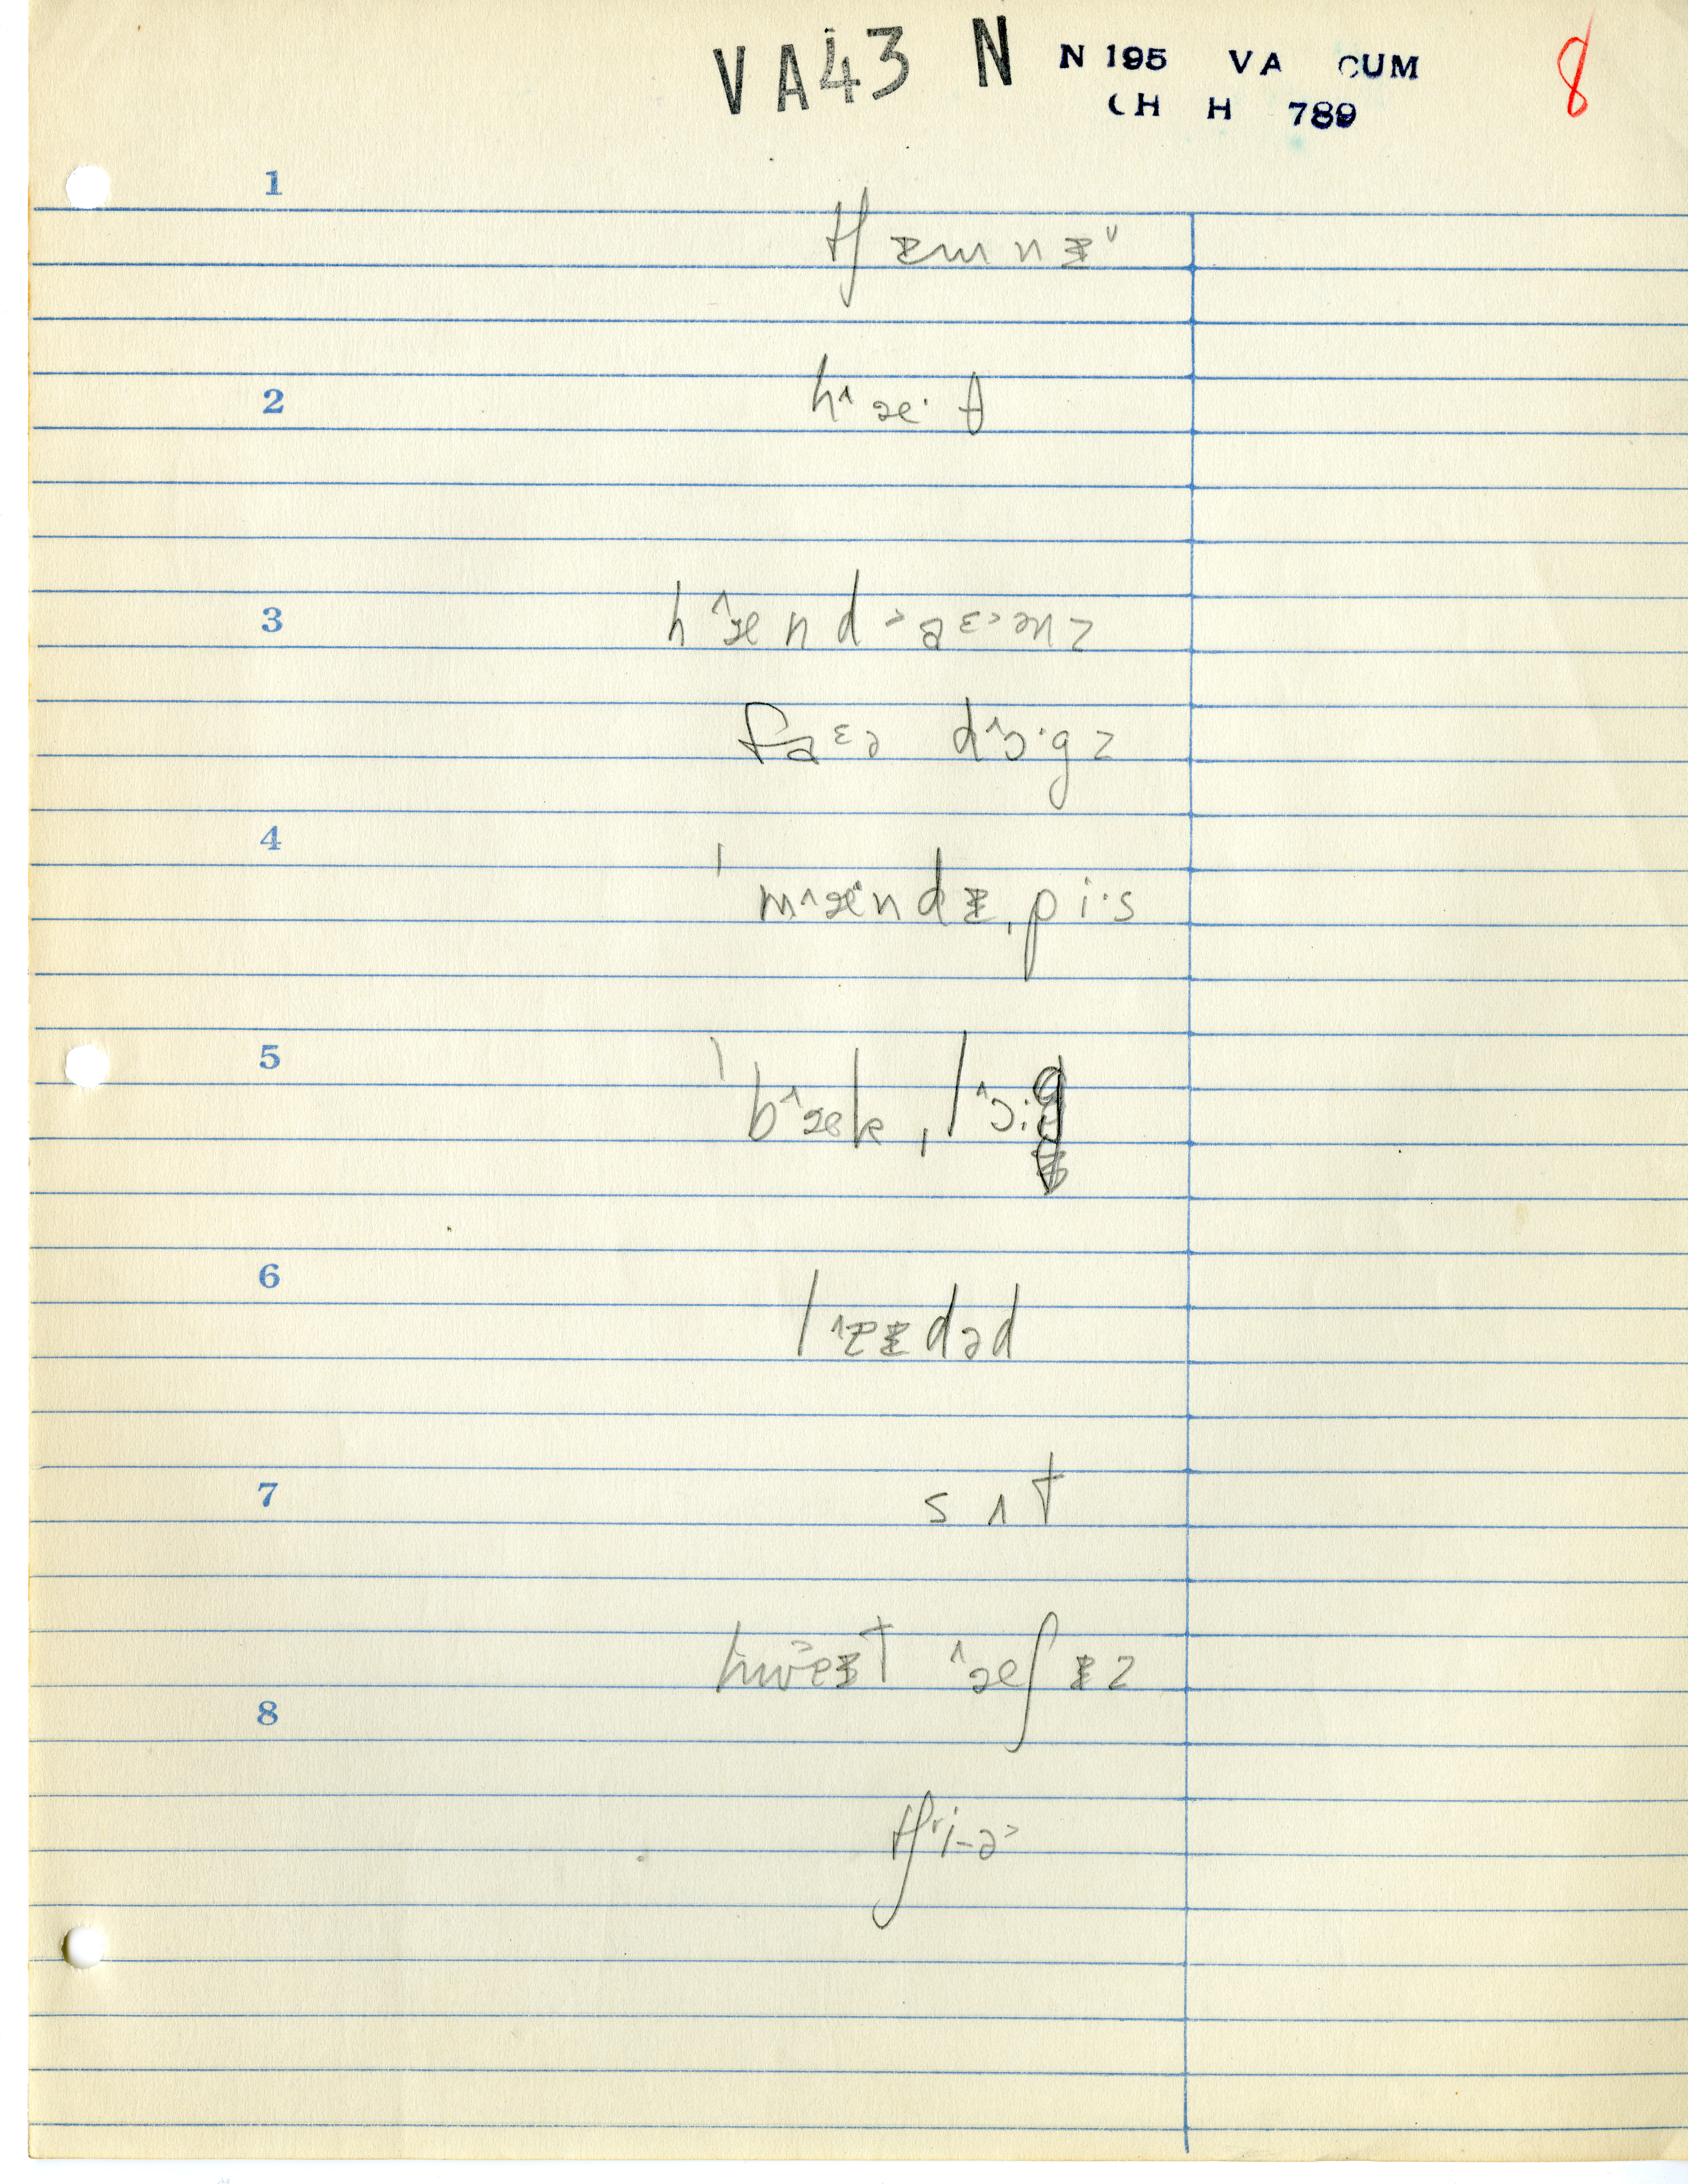 VA43 N N 195 VA CUM 8
CH H 789
1
tʃɪmnɪ
2
hˆæ·θ
3
hˆænd aɛənz
faɛə dˆɔ·gz
4
ˈmˆændɪˌpi·s
5
ˈbˆækˌlˆɔ·g
6
lˆɪɪdəd
7
sʌt
hwɛɪt ˆæʃɪz
8
tʃi-ə